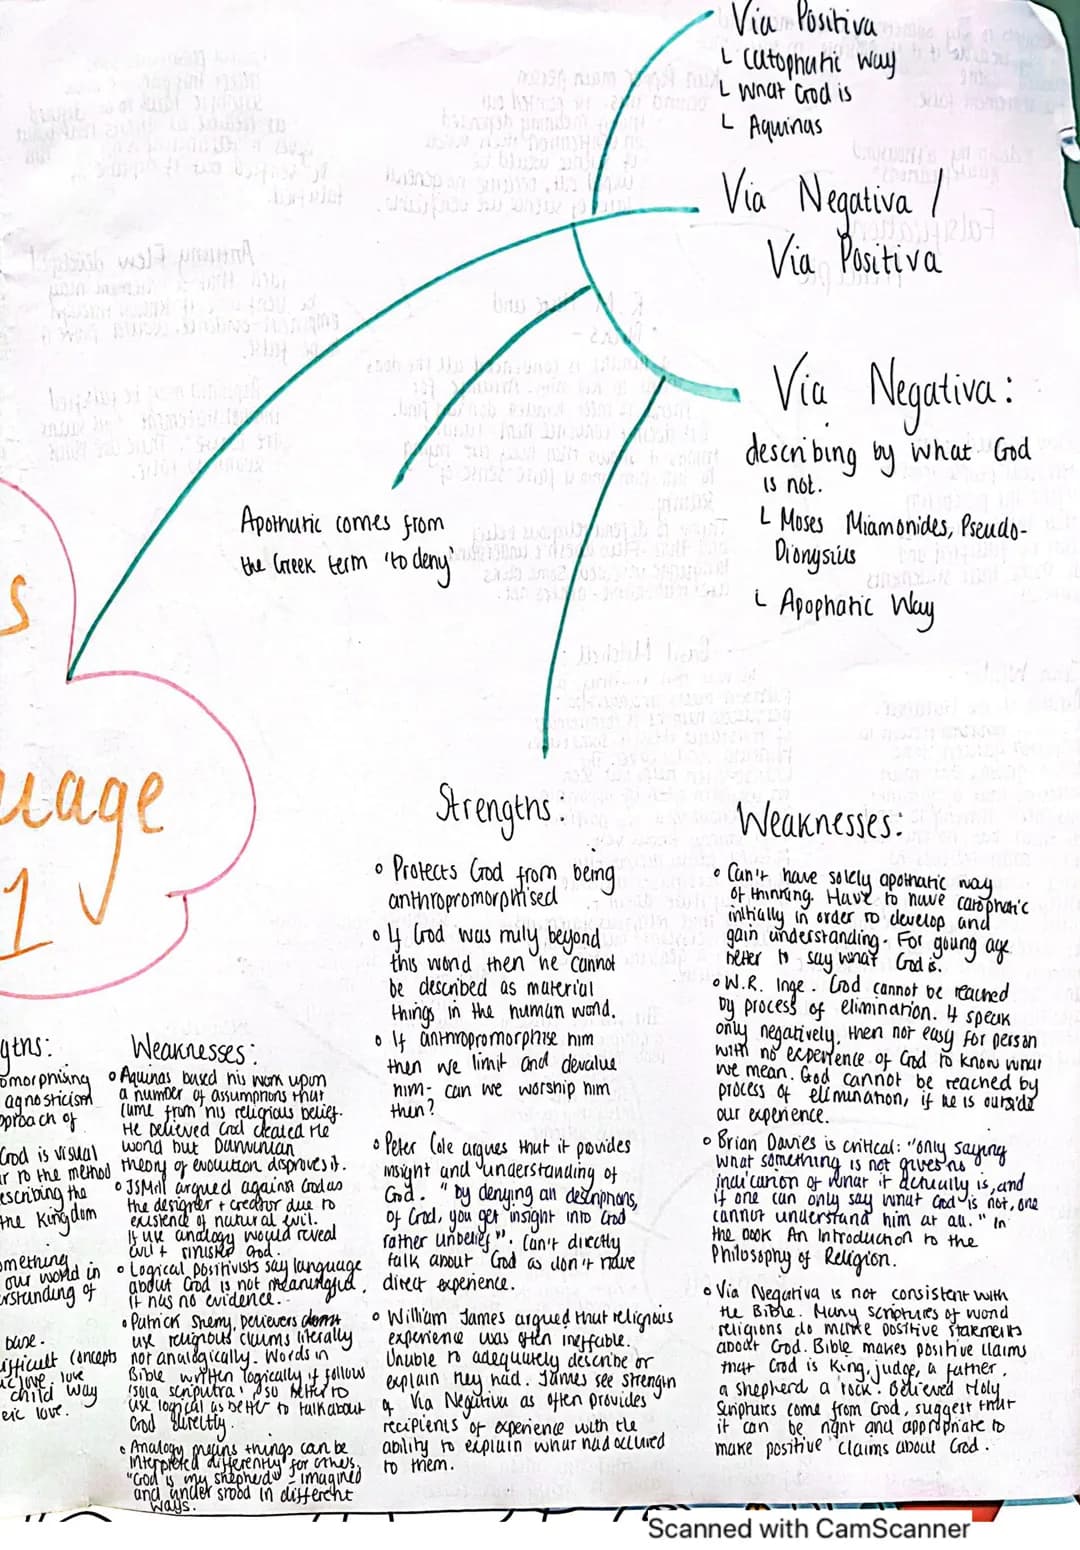 Via Positiva
L Catophatic way
L what God is
L Aquinas
Via Negativa /
Via Positiva
Via Negativa:
describing by what God
is not.
L Moses Miamonides, Pseudo-
Dionysius
L Apophatic Way
Apothatic comes from
the Greek term 'to deny'
s
uage
1
Strengths.
• Protects God from being
anthropromorphised
• If God was truly beyond
this world then he cannot
be described as material
things in the human world.
• If anthropromorphise him
then we limit and devalue
him- can we worship him
then?
• Peter Cole argues that it provides
insight and understanding of
God. "by denying all descriptions,
of God, you get insight into God
rather unbelief". Can't directly
talk about God as don't have
direct experience.
• William James argued that religious
experience was often ineffable.
Unable to adequately describe or
explain they had. James see strength
of Via Negativa as often provides
recipients of experience with the
ability to explain what had occured
to them.
Weaknesses:
• Can't have solely apothatic way
of thinking. Have to have catophatic
initially in order to develop and
gain understanding. For young age
better to say what God is.
• W.R. Inge. God cannot be reached
by process of elimination. If speak
only negatively, then not easy for person
with no experience of God to know what
we mean. God cannot be reached by
process of elimination, if he is outside
our experience.
• Brian Davies is critical: "only saying
what something is not gives no
indication of what it actually is, and
if one can only say what God is not, one
cannot understand him at all." In
the book An Introduction to the
Philosophy of Religion.
• Via Negativa is not consistent with
the Bible. Many scriptures of world
religions do make positive statements
about God. Bible makes positive claims
that God is King, judge, a father,
a shepherd a rock. Believed Holy
Scriptures come from God, suggest that
it can be right and appropriate to
make positive claims about God.
gths:
omorphising
agnosticism
pproach of
God is visual
r to the method
escribing the
the Kingdom
omething
our world in
erstanding of
base.
ifficult concepts
love
child way
eric love.
Weaknesses:
• Aquinas based his work upon
a number of assumptions that
came from his religious belief.
He believed God created the
world but Darwinian
theory of evolution disproves it.
• JS Mill argued against God as
the designer + creator due to
existence of natural evil.
If use analogy would reveal
evil + sinister God.
• Logical positivists say language
about God is not meaningful,
it has no evidence.
• Patrick Sherry, believers
use religious claims literally
not analogically. Words in
Bible written logically if follow
'sola scriptura' so better to
use logical as better to talk about
God directly.
• Analogy means things can be
interpreted differently for others.
"God is my shepherd" - imagined
and understood in different
ways.
Scanned with CamScanner